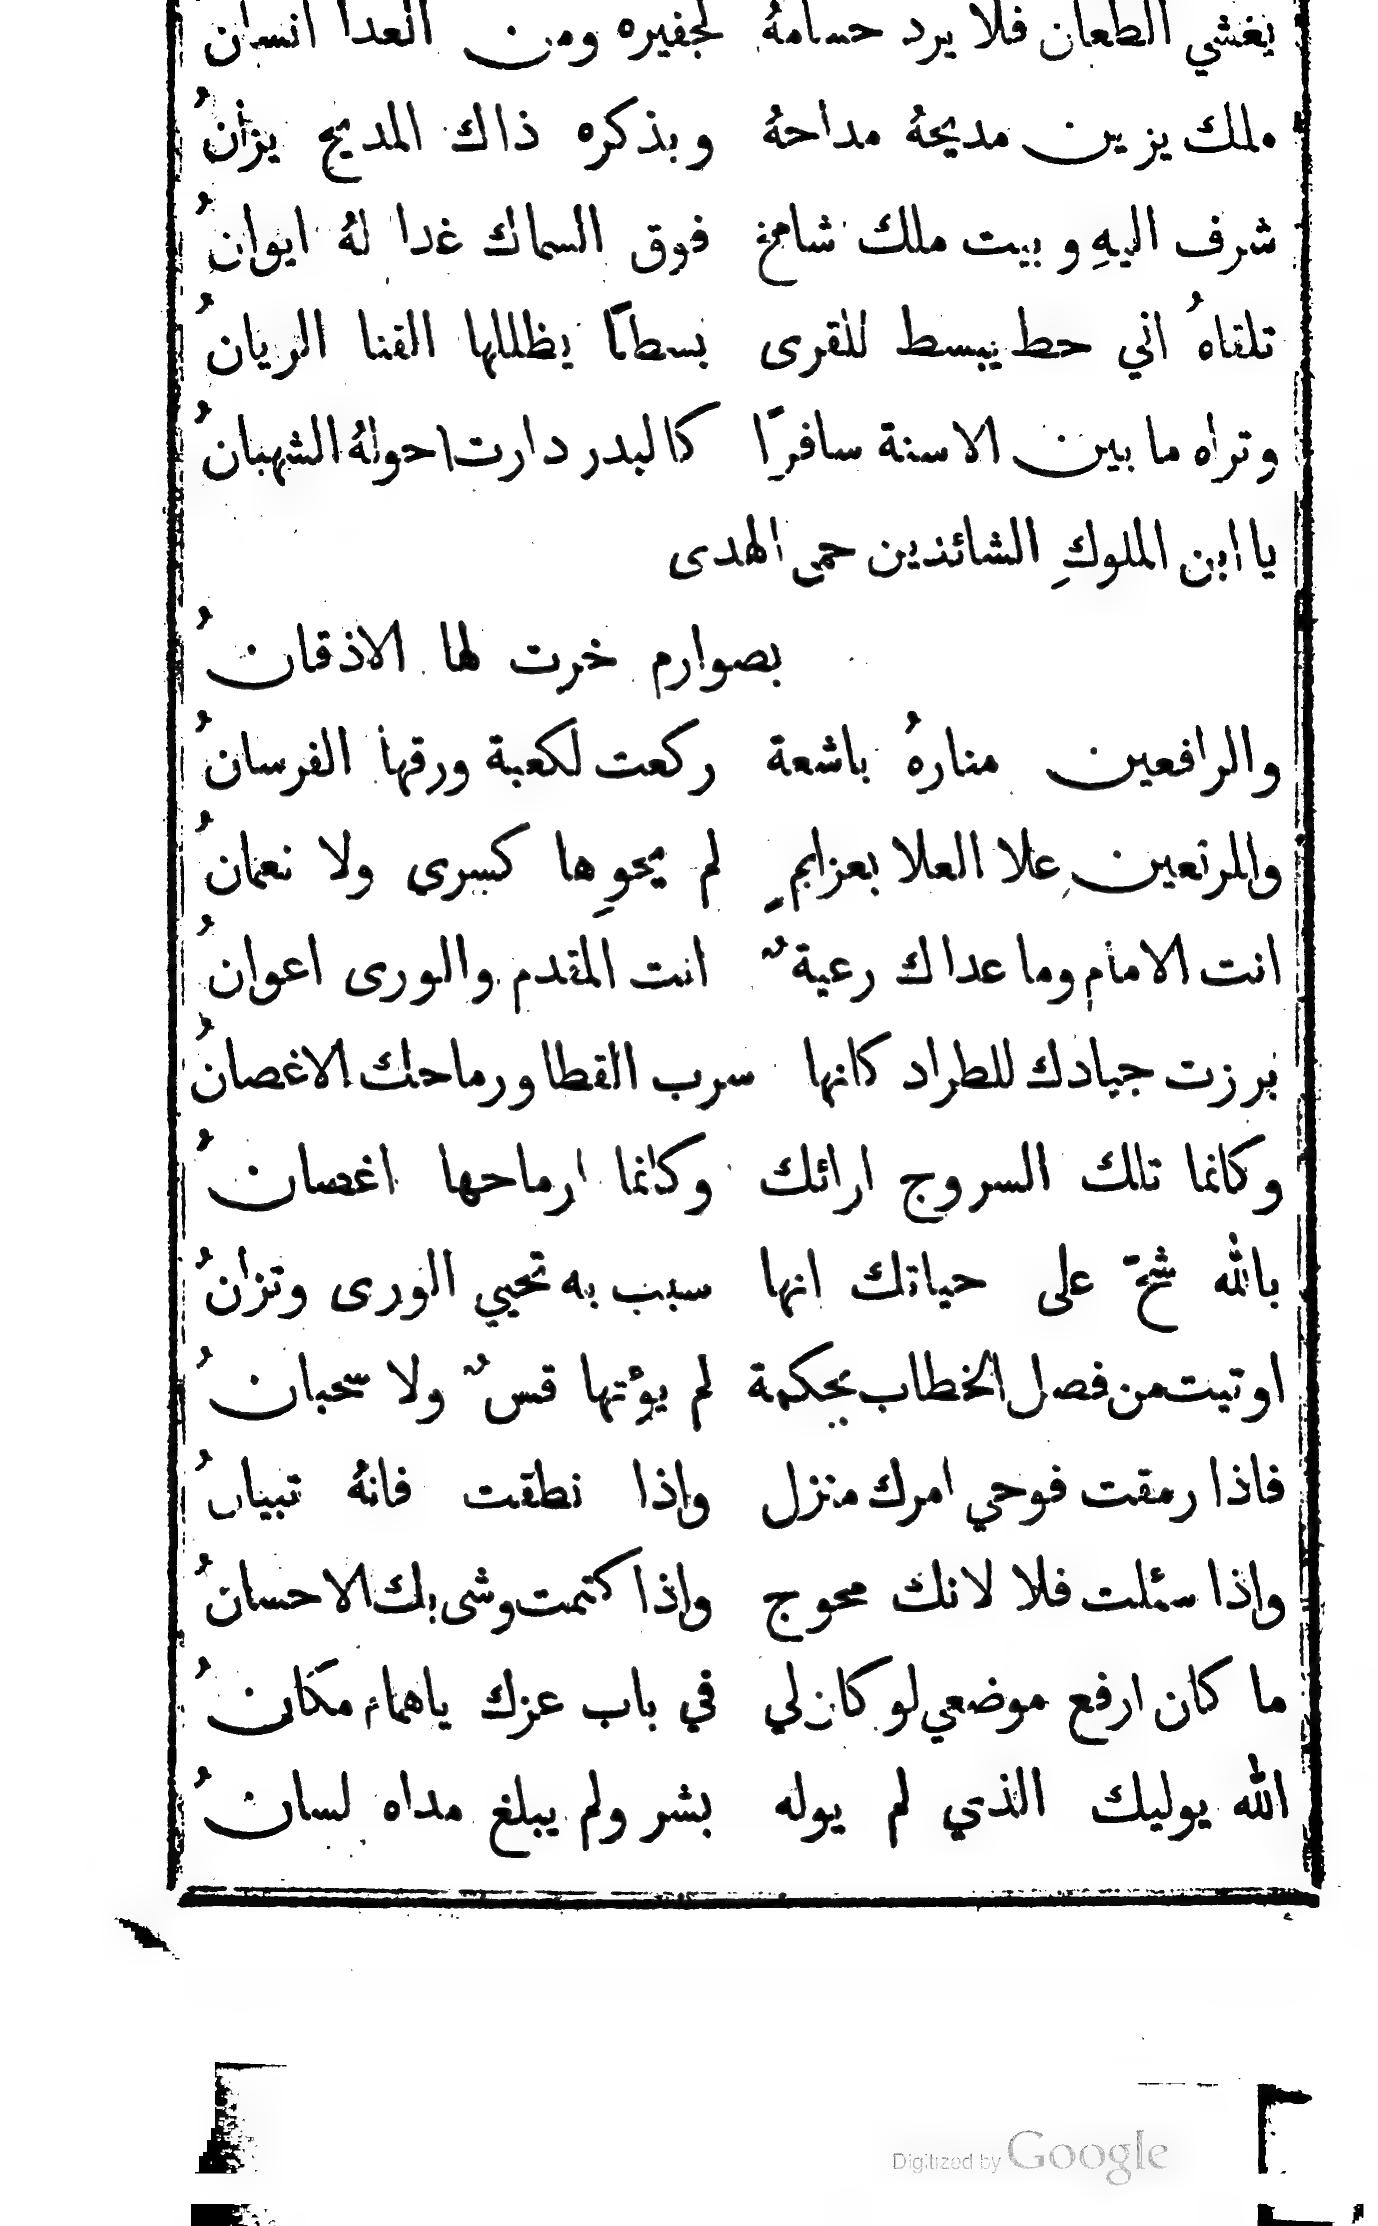 يغشي الطعان فلا يرد حسامهُ لجفيره ومن العدا انسان
ملك يزين مديحهُ مداحهُ وبذكره ذاك المديح يزانُ
شرف اليهِ وبيت ملك شامخ فوق السماك غدا لهُ ايوانُ
تلقاهُ اني حط يبسط للقرى بسطًا يظللها القنا الريانُ
وتراه ما بين الاسنة سافرًا كالبدر دارت حولهُ الشهبانُ
يا ابن الملوكِ الشائذين حمى الهدى
بصوارم خرت لها الاذقانُ
والرافعين منارهُ باشعة ركعت لكعبة ورقها الفرسانُ
والمرتعين علا العلا بعزايمٍ لم يحوِها كسرى ولا نعمانُ
انت الامام وما عداك رعيةٌ انت المقدم والورى اعوانُ
برزت جيادك للطراد كانها سرب القطا ورماحك الاغصانُ
وكانما تلك السروج ارائك وكانما ارماحها اغصانُ
بالله شحّ على حياتك انها سبب به تحيي الورى وتزانُ
اوتيت من فصل الخطاب بحكمة لم يؤتها قسٌ ولا سحبانُ
فاذا رمقت فوحي امرك منزل واذا نطقت فانهُ تبيانُ
واذا سئلت فلا لانك محوج واذا كتمت وشى بك الاحسانُ
ما كان ارفع موضعي لو كان لي في باب عزك ياهماء مكانُ
الله يوليك الذي لم يوله بشر ولم يبلغ مداه لسانُ
Digitized by Google